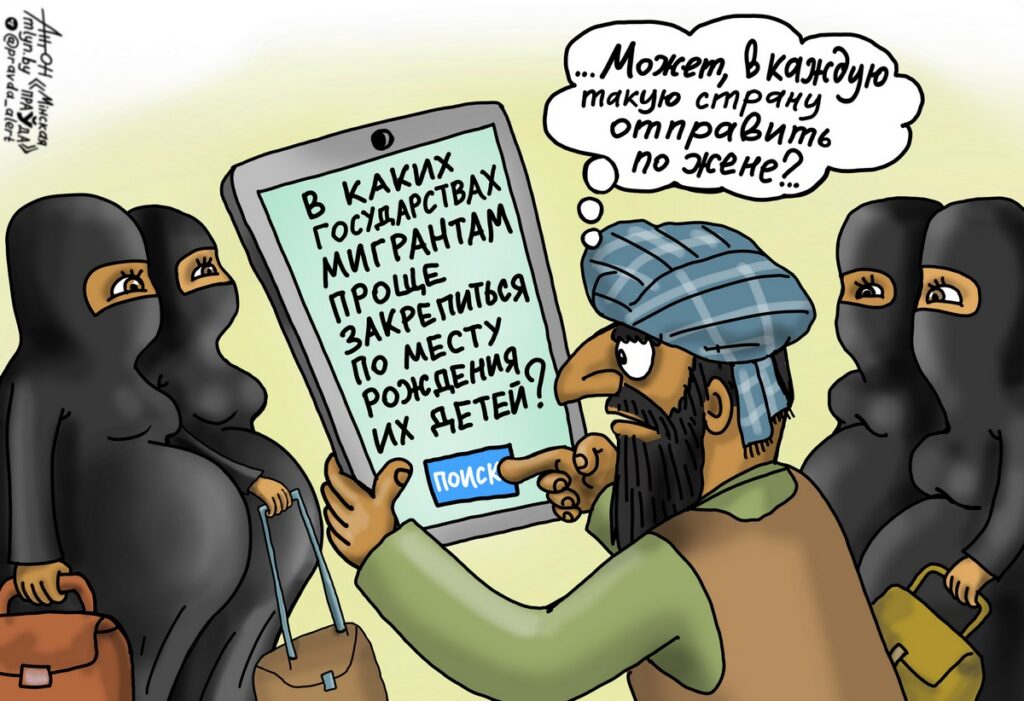 Антон «Мінская
mlyn.by праўда»
@pravda_alert
...Может, в каждую
такую страну
отправить
по жене?..
В каких
государствах
мигрантам
проще
закрепиться
по месту
рождения
их детей?
ПОИСК